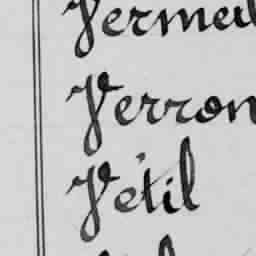 Vermeil
Verron
Vétil